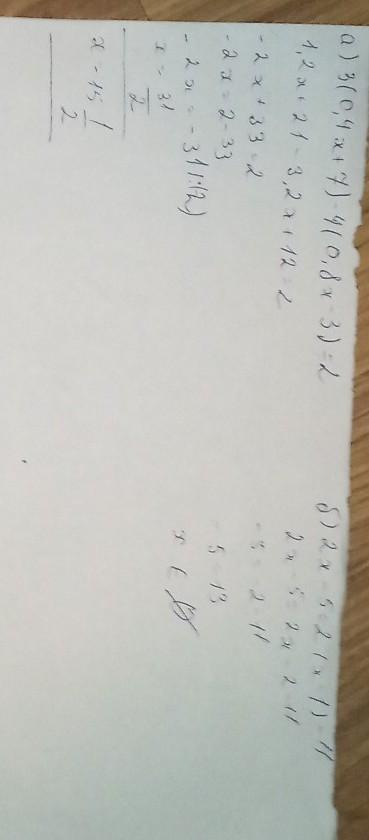 а) 3(0,4x+7)-4(0,8x-3)=2
1,2x+21-3,2x+12=2
-2x+33=2
-2x=2-33
-2x=-31 |:(-2)
x = 31/2
x = 15 1/2
б) 2x-5=2(x-1)-11
2x-5=2x-2-11
-5=-2-11
-5=-13
x ∈ ∅